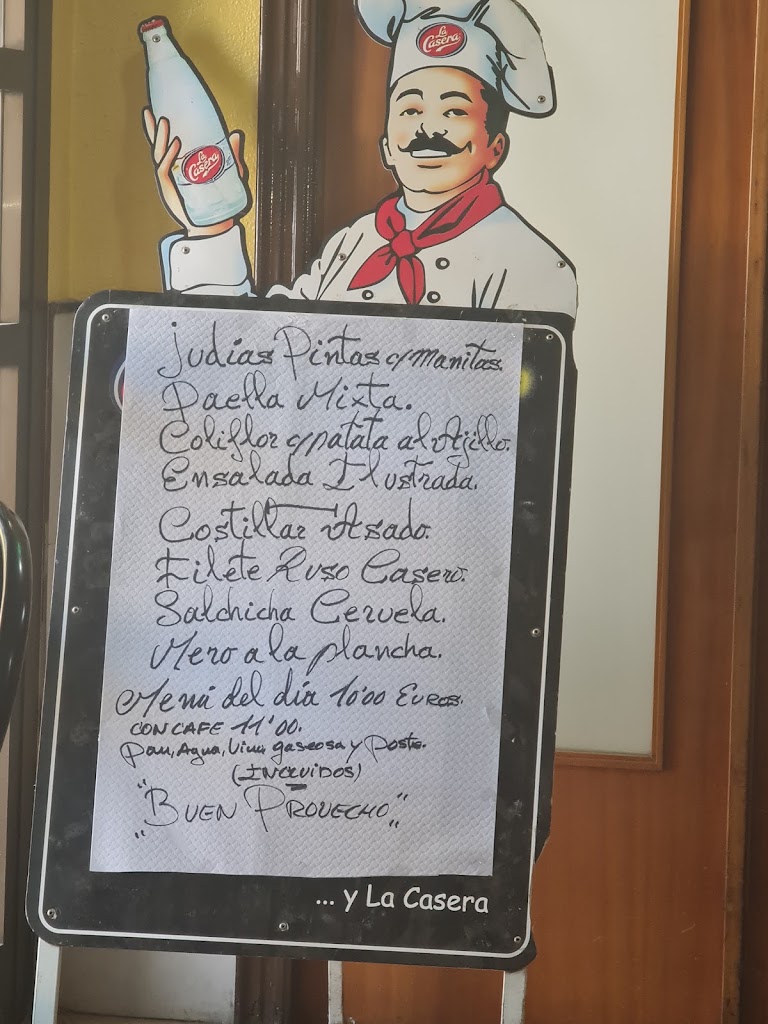 La Casera
La Casera
Judías Pintas c/manitas.
Paella Mixta.
Coliflor c/patata al Ajillo.
Ensalada Ilustrada.
Costillar Asado.
Filete Ruso Casero.
Salchicha Cervela.
Mero a la plancha.
Menú del día 10'00 Euros.
CON CAFE 11'00.
Pan, Agua, Vino, gaseosa y Postre.
(INCLUIDOS)
"BUEN PROVECHO"
... y La Casera